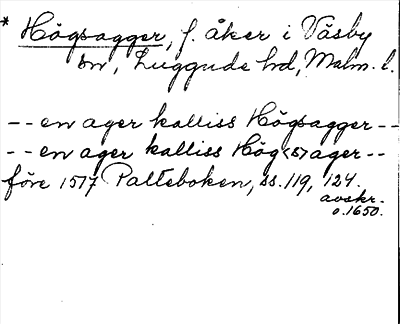 * Högsagger, f. åker i Väsby
sn, Luggude hd, Malm. l.
-- en ager kalliss Högsagger --
-- en ager kalliss Hög<s>ager --
före 1517 Palteboken, ss. 119, 124.
avskr.
o. 1650.